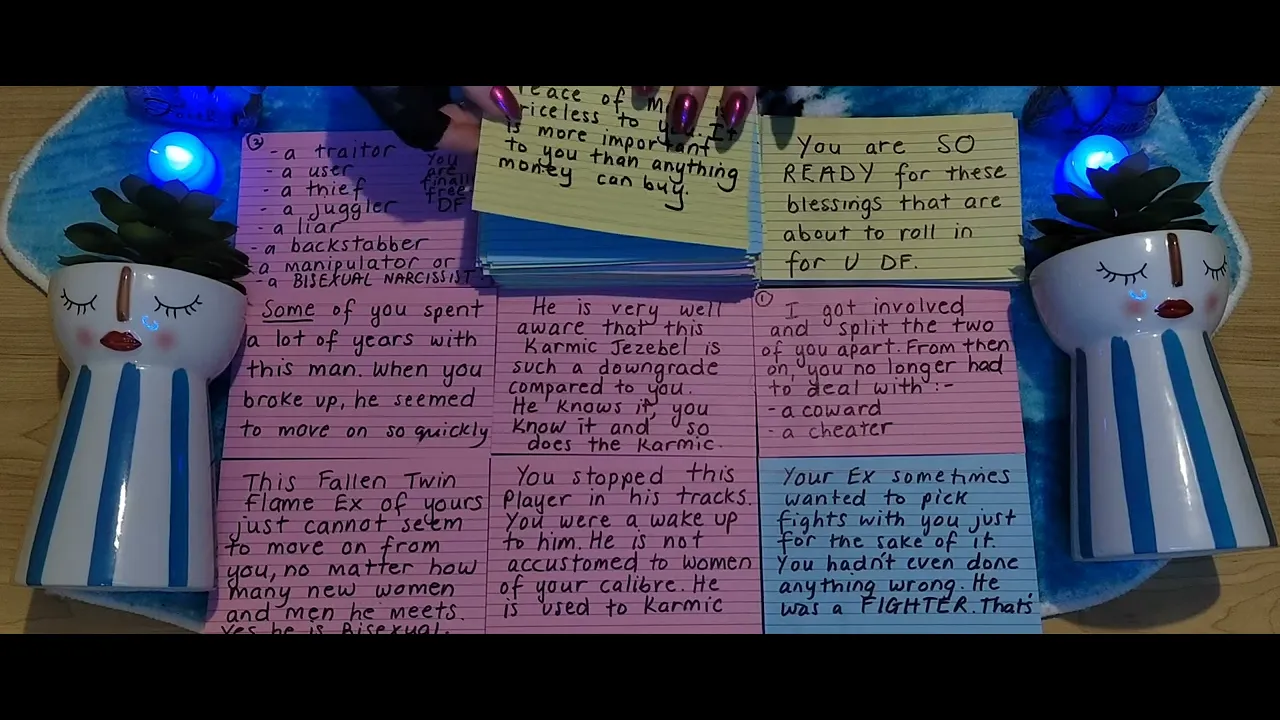 ②
- a traitor
- a user
- a thief
- a juggler
- a liar
- a backstabber
- a manipulator or
- a BISEXUAL NARCISSIST
You
are
finally
free
DF
Peace of
priceless to you. It
is more important
to you than anything
money can buy.
You are SO
READY for these
blessings that are
about to roll in
for U DF.
Some of you spent
a lot of years with
this man. When you
broke up, he seemed
to move on so quickly
He is very well
aware that this
Karmic Jezebel is
such a downgrade
compared to you.
He knows it, you
know it and so
does the Karmic.
①
I got involved
and split the two
of you apart. From then
on, you no longer had
to deal with :-
- a coward
- a cheater
This Fallen Twin
Flame Ex of yours
just cannot seem
to move on from
you, no matter how
many new women
and men he meets.
Yes he is Bisexual.
You stopped this
Player in his tracks.
You were a wake up
to him. He is not
accustomed to women
of your calibre. He
is used to Karmic
Your Ex sometimes
wanted to pick
fights with you just
for the sake of it.
You hadn't even done
anything wrong. He
was a FIGHTER. That's